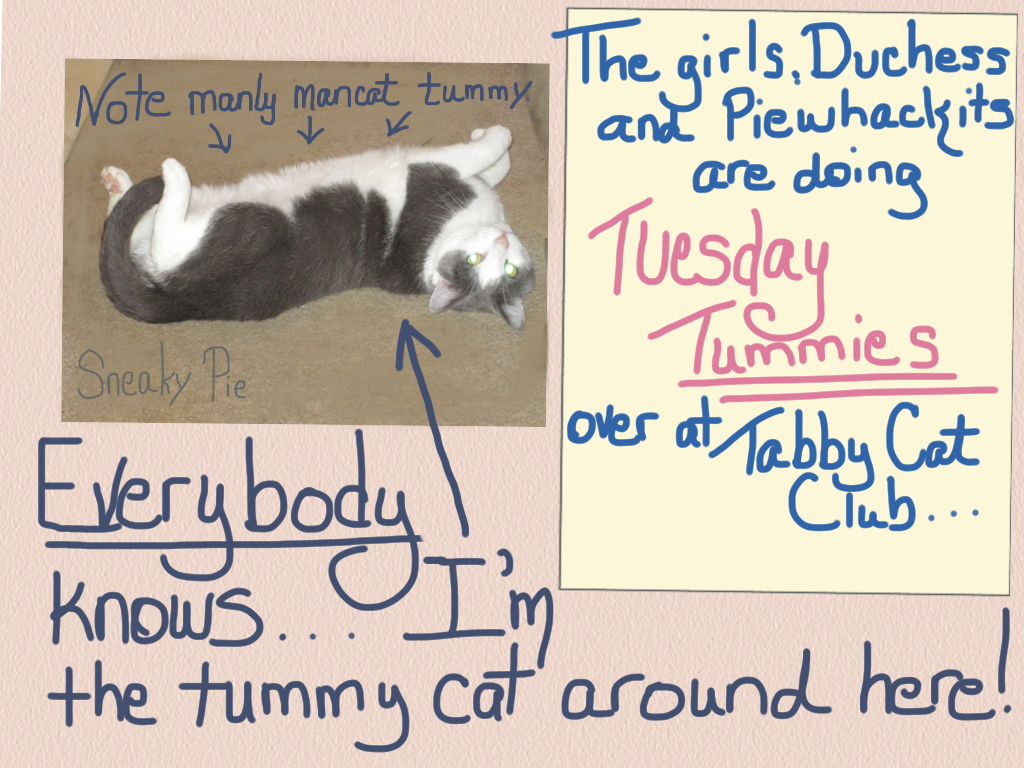 Note manly mancat tummy
Sneaky Pie
The girls, Duchess
and Piewhackits
are doing
Tuesday
Tummies
over at Tabby Cat
Club...
Everybody
knows... I'm
the tummy cat around here!